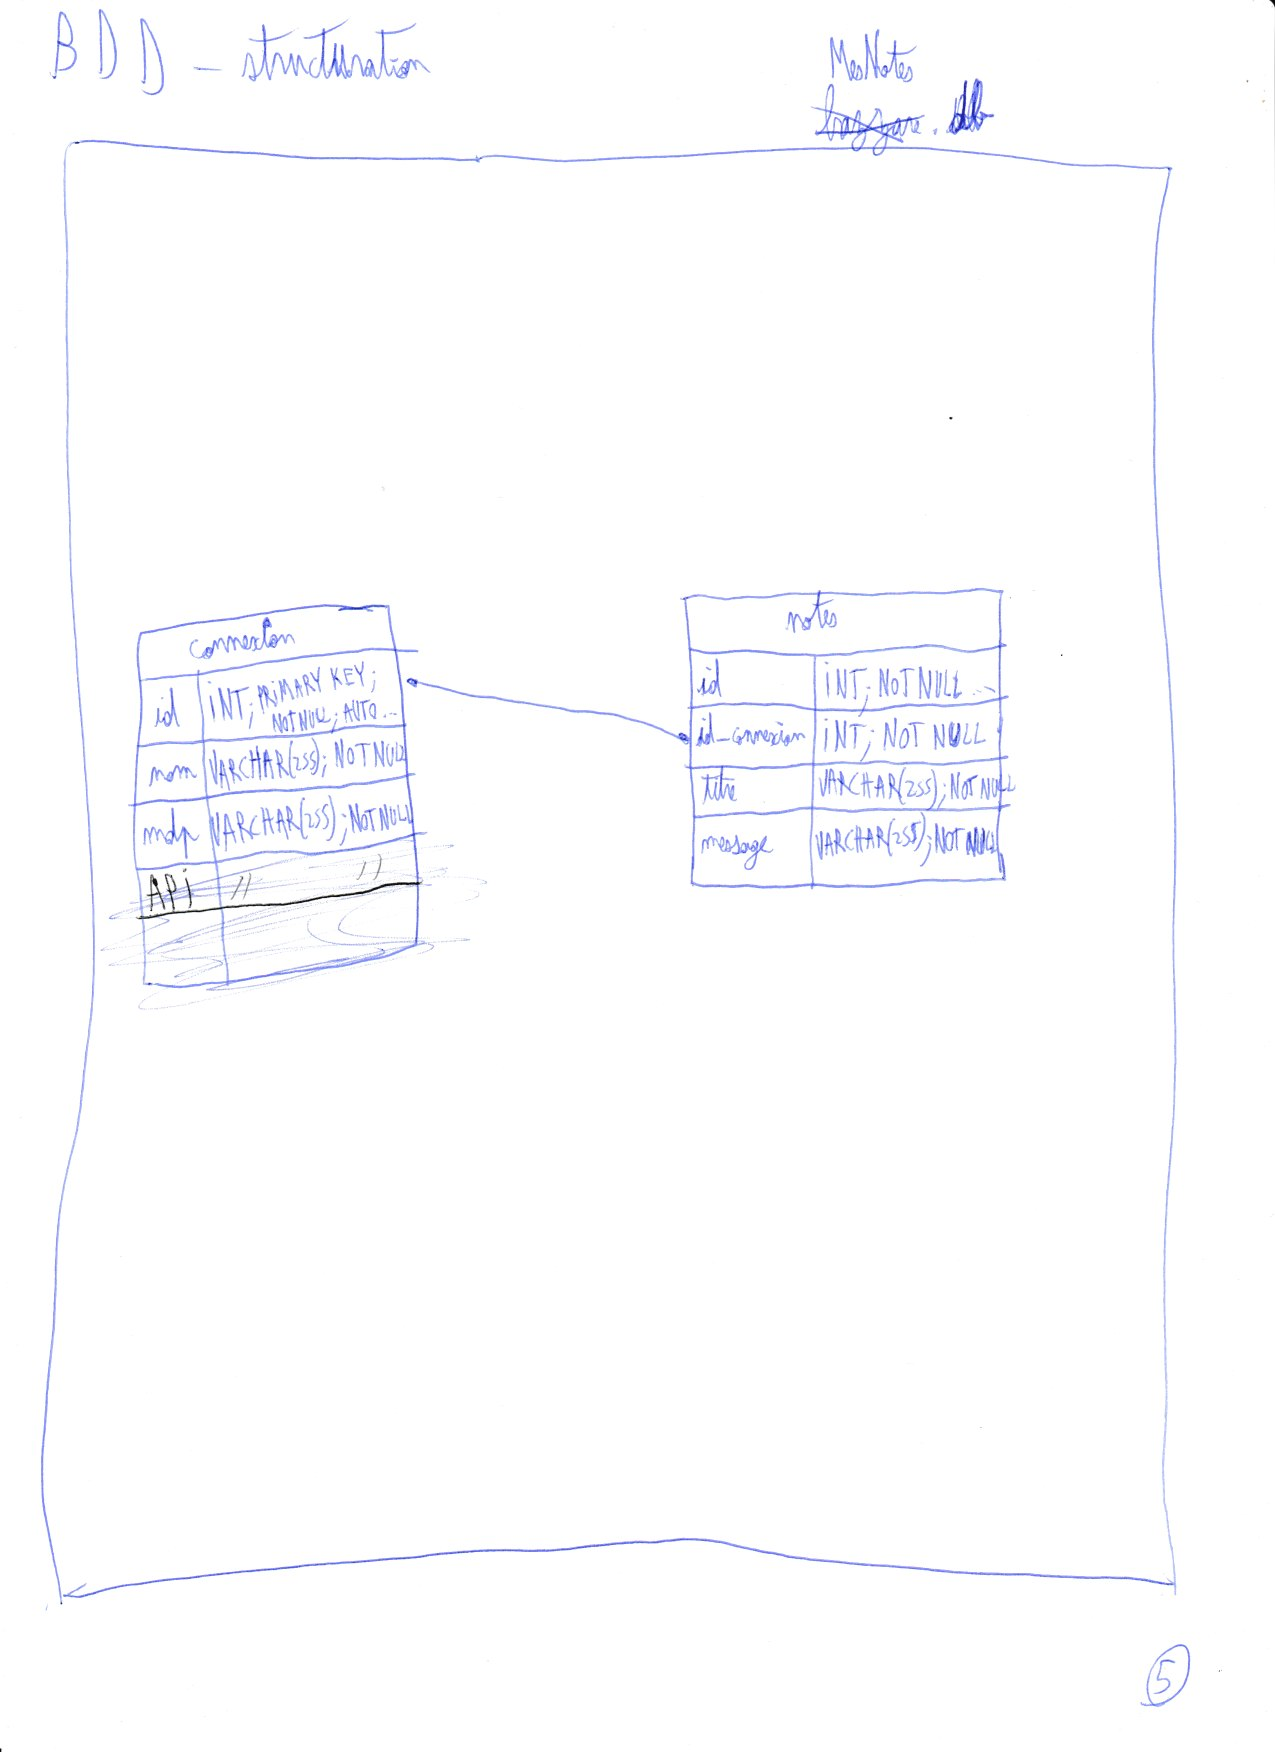 BDD - structuration
MesNotes
.db
connexion
id INT; PRIMARY KEY;
NOT NULL; AUTO...
nom VARCHAR(255); NOT NULL
mdp VARCHAR(255); NOT NULL
API // //
notes
id INT; NOT NULL ...
id_connexion INT; NOT NULL
titre VARCHAR(255); NOT NULL
message VARCHAR(255); NOT NULL
5